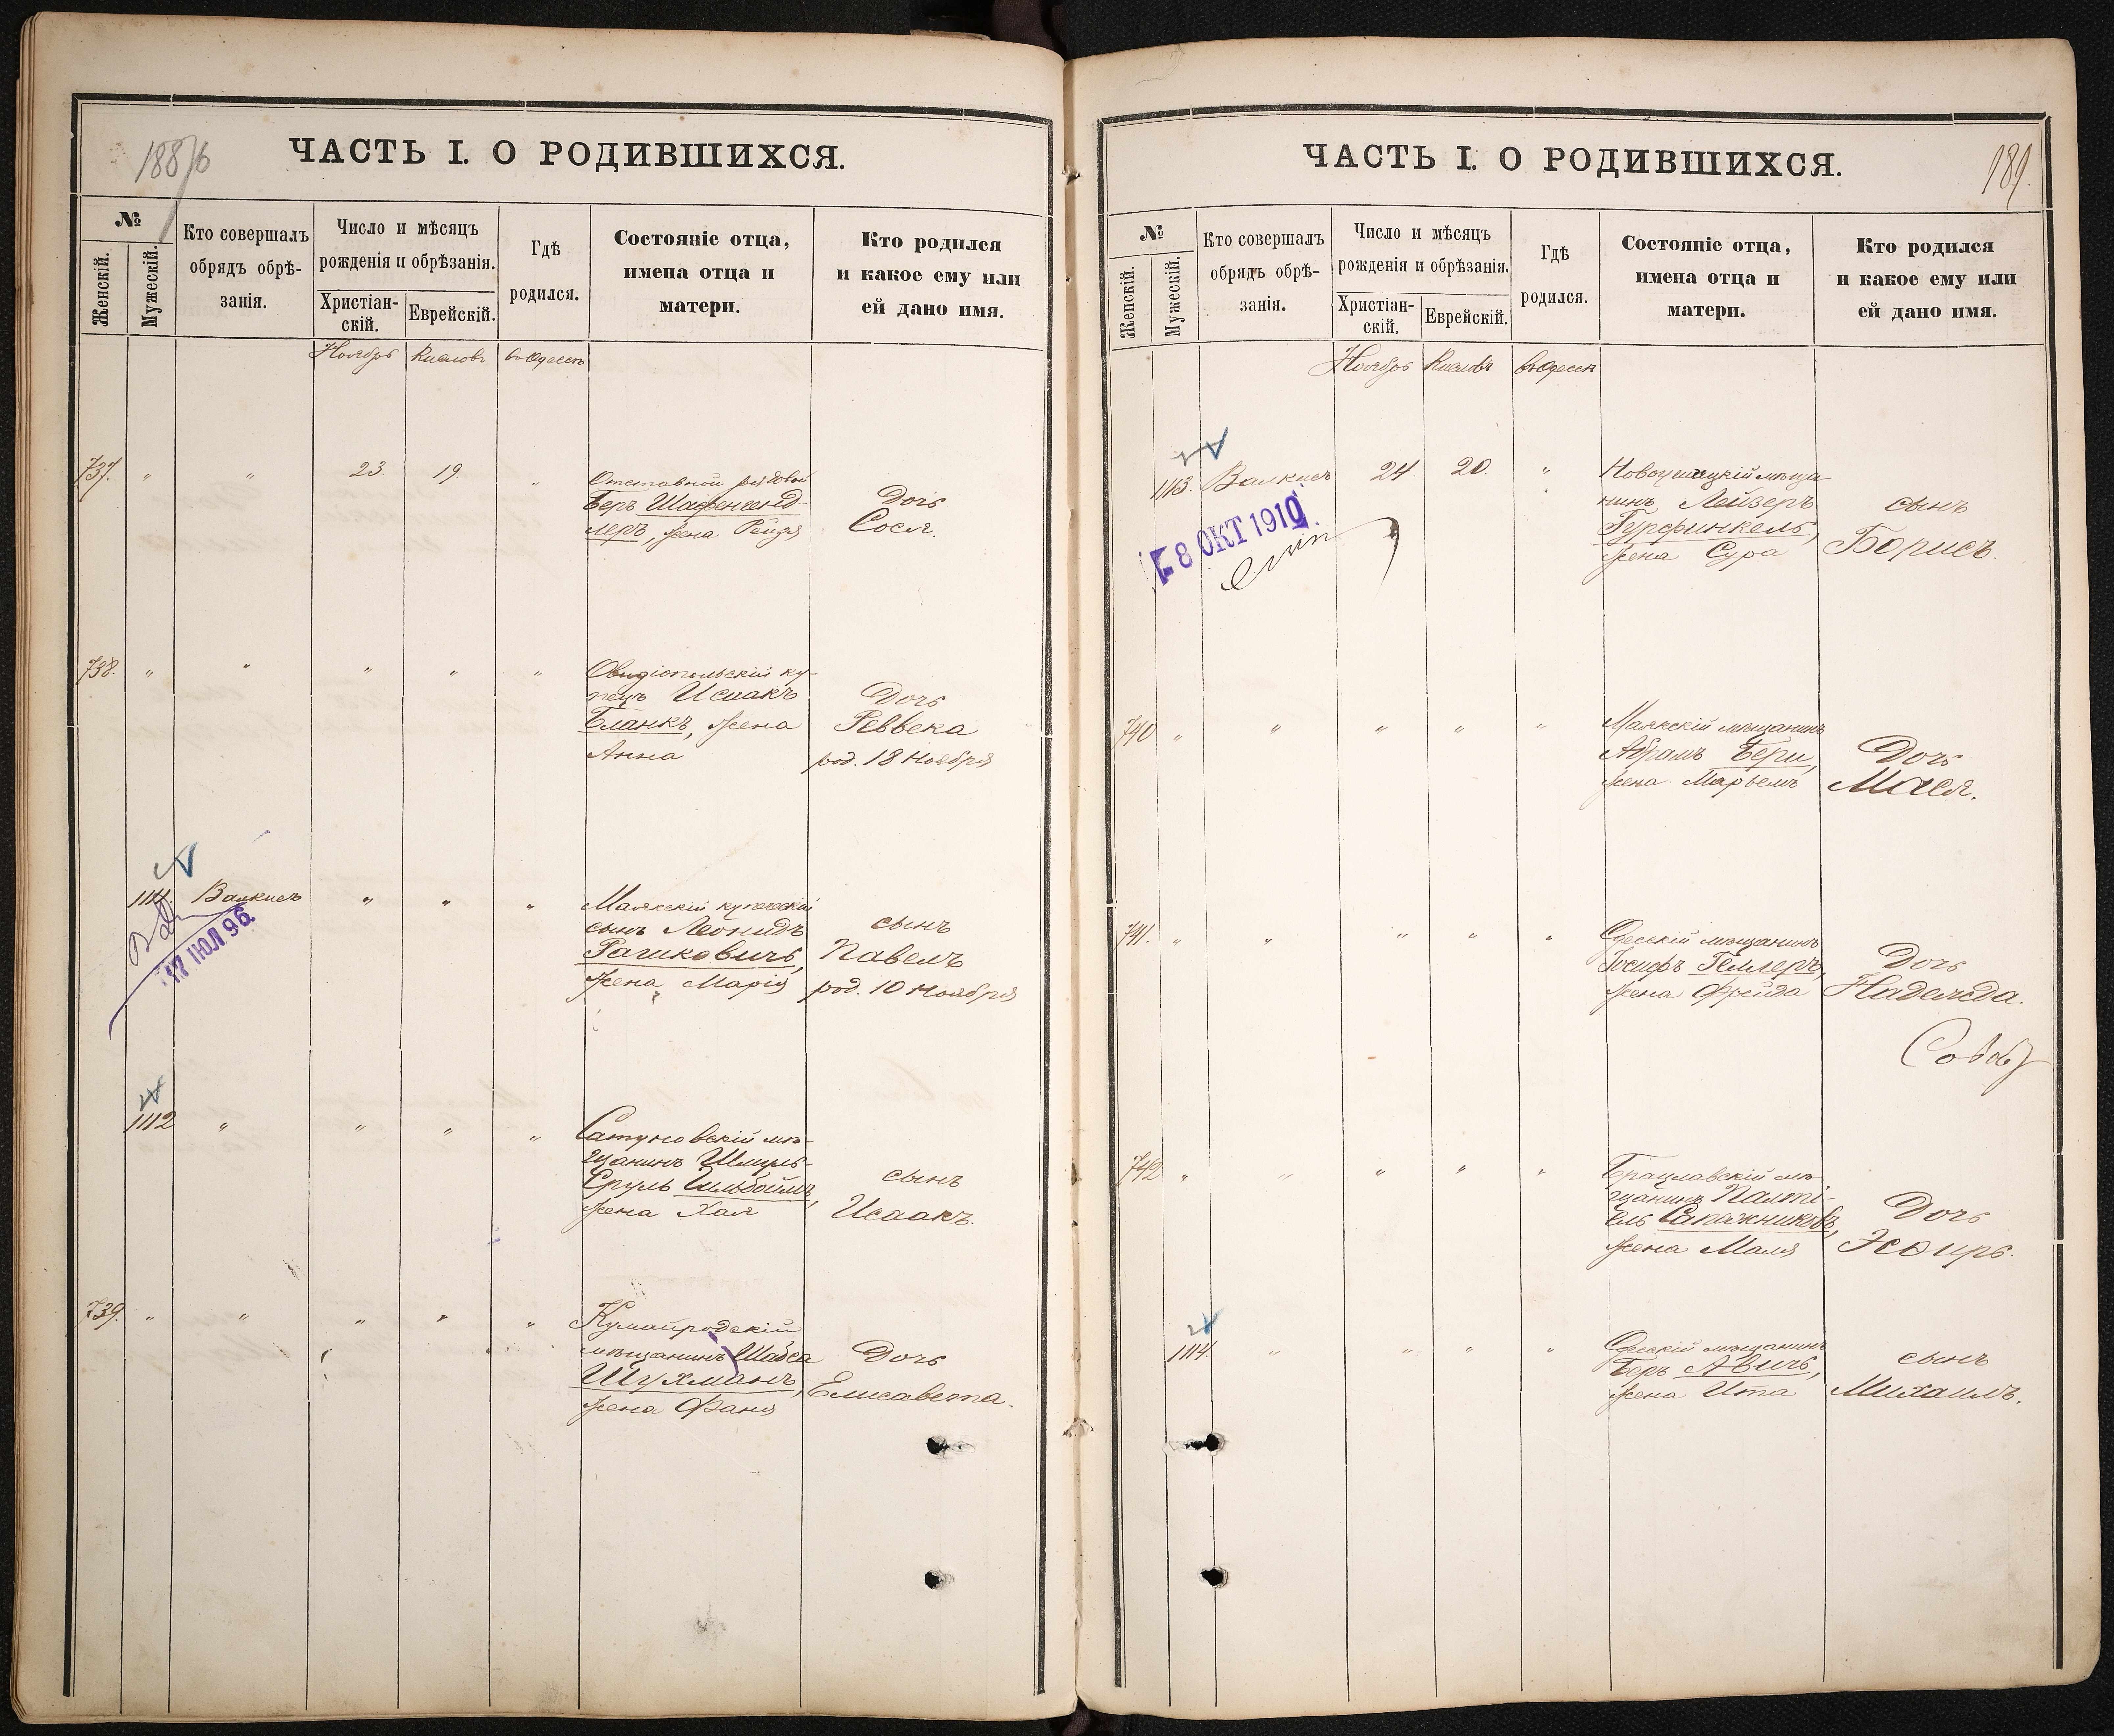 188
ЧАСТЬ I. О РОДИВШИХСЯ.
№
Женскій.
Мужескій.
Кто совершалъ
обрядъ обрѣ-
занія.
Число и мѣсяцъ
рожденія и обрѣзанія.
Христіан-
скій.
Еврейскій.
Гдѣ
родился.
Состояніе отца,
имена отца и
матери.
Кто родился
и какое ему или
ей дано имя.
Ноябрь Кислевъ въ Одессѣ
737. " " 23. 19. "
Отставной рядовой
Беръ Шафенченд-
леръ, жена Рейзя
Дочь
Сося.
738. " " " " "
Овидіопольскій ку-
пецъ Исаакъ
Бланкъ, жена
Анна
Дочь
Реввека
род. 18 ноября
1111. Валкисъ " " "
17 ІЮЛ 96
Маякскій купеческій
сынъ Леонидъ
Рашковичъ,
жена Марія
сынъ
Павелъ
род. 10 ноября
1112 " " " "
Сатуновскій мѣ-
щанинъ Шмуль-
Сруль Гильбоймъ,
жена Хая
сынъ
Исаакъ.
739. " " " " "
мѣщанинъ Шабса
Шухманъ,
жена Фаня
Дочь
Елисавета.
ЧАСТЬ I. О РОДИВШИХСЯ.
189.
№
Женскій.
Мужескій.
Кто совершалъ
обрядъ обрѣ-
занія.
Число и мѣсяцъ
рожденія и обрѣзанія.
Христіан-
скій.
Еврейскій.
Гдѣ
родился.
Состояніе отца,
имена отца и
матери.
Кто родился
и какое ему или
ей дано имя.
Ноябрь Кислевъ въ Одессѣ
1113. Валкисъ 24. 20. "
8 ОКТ 1910
Новоушицкій мѣща-
нинъ Лейзеръ
Гурфинкель,
жена Сура
сынъ
Борисъ.
740 " " " " "
Маякскій мѣщанинъ
Абрамъ Бери,
жена Марьемъ
Дочь
Мася.
741. " " " " "
Одесскій мѣщанинъ
Іосифъ Геллеръ,
жена Фрейда
Дочь
Надежда.
742 " " " " "
Брацлавскій мѣ-
щанинъ Палті-
ель Сапожниковъ,
жена Маля
Дочь
Эсѳирь.
1114. " " " "
Одесскій мѣщанинъ
Беръ Авичъ,
жена Ита
сынъ
Михаилъ.